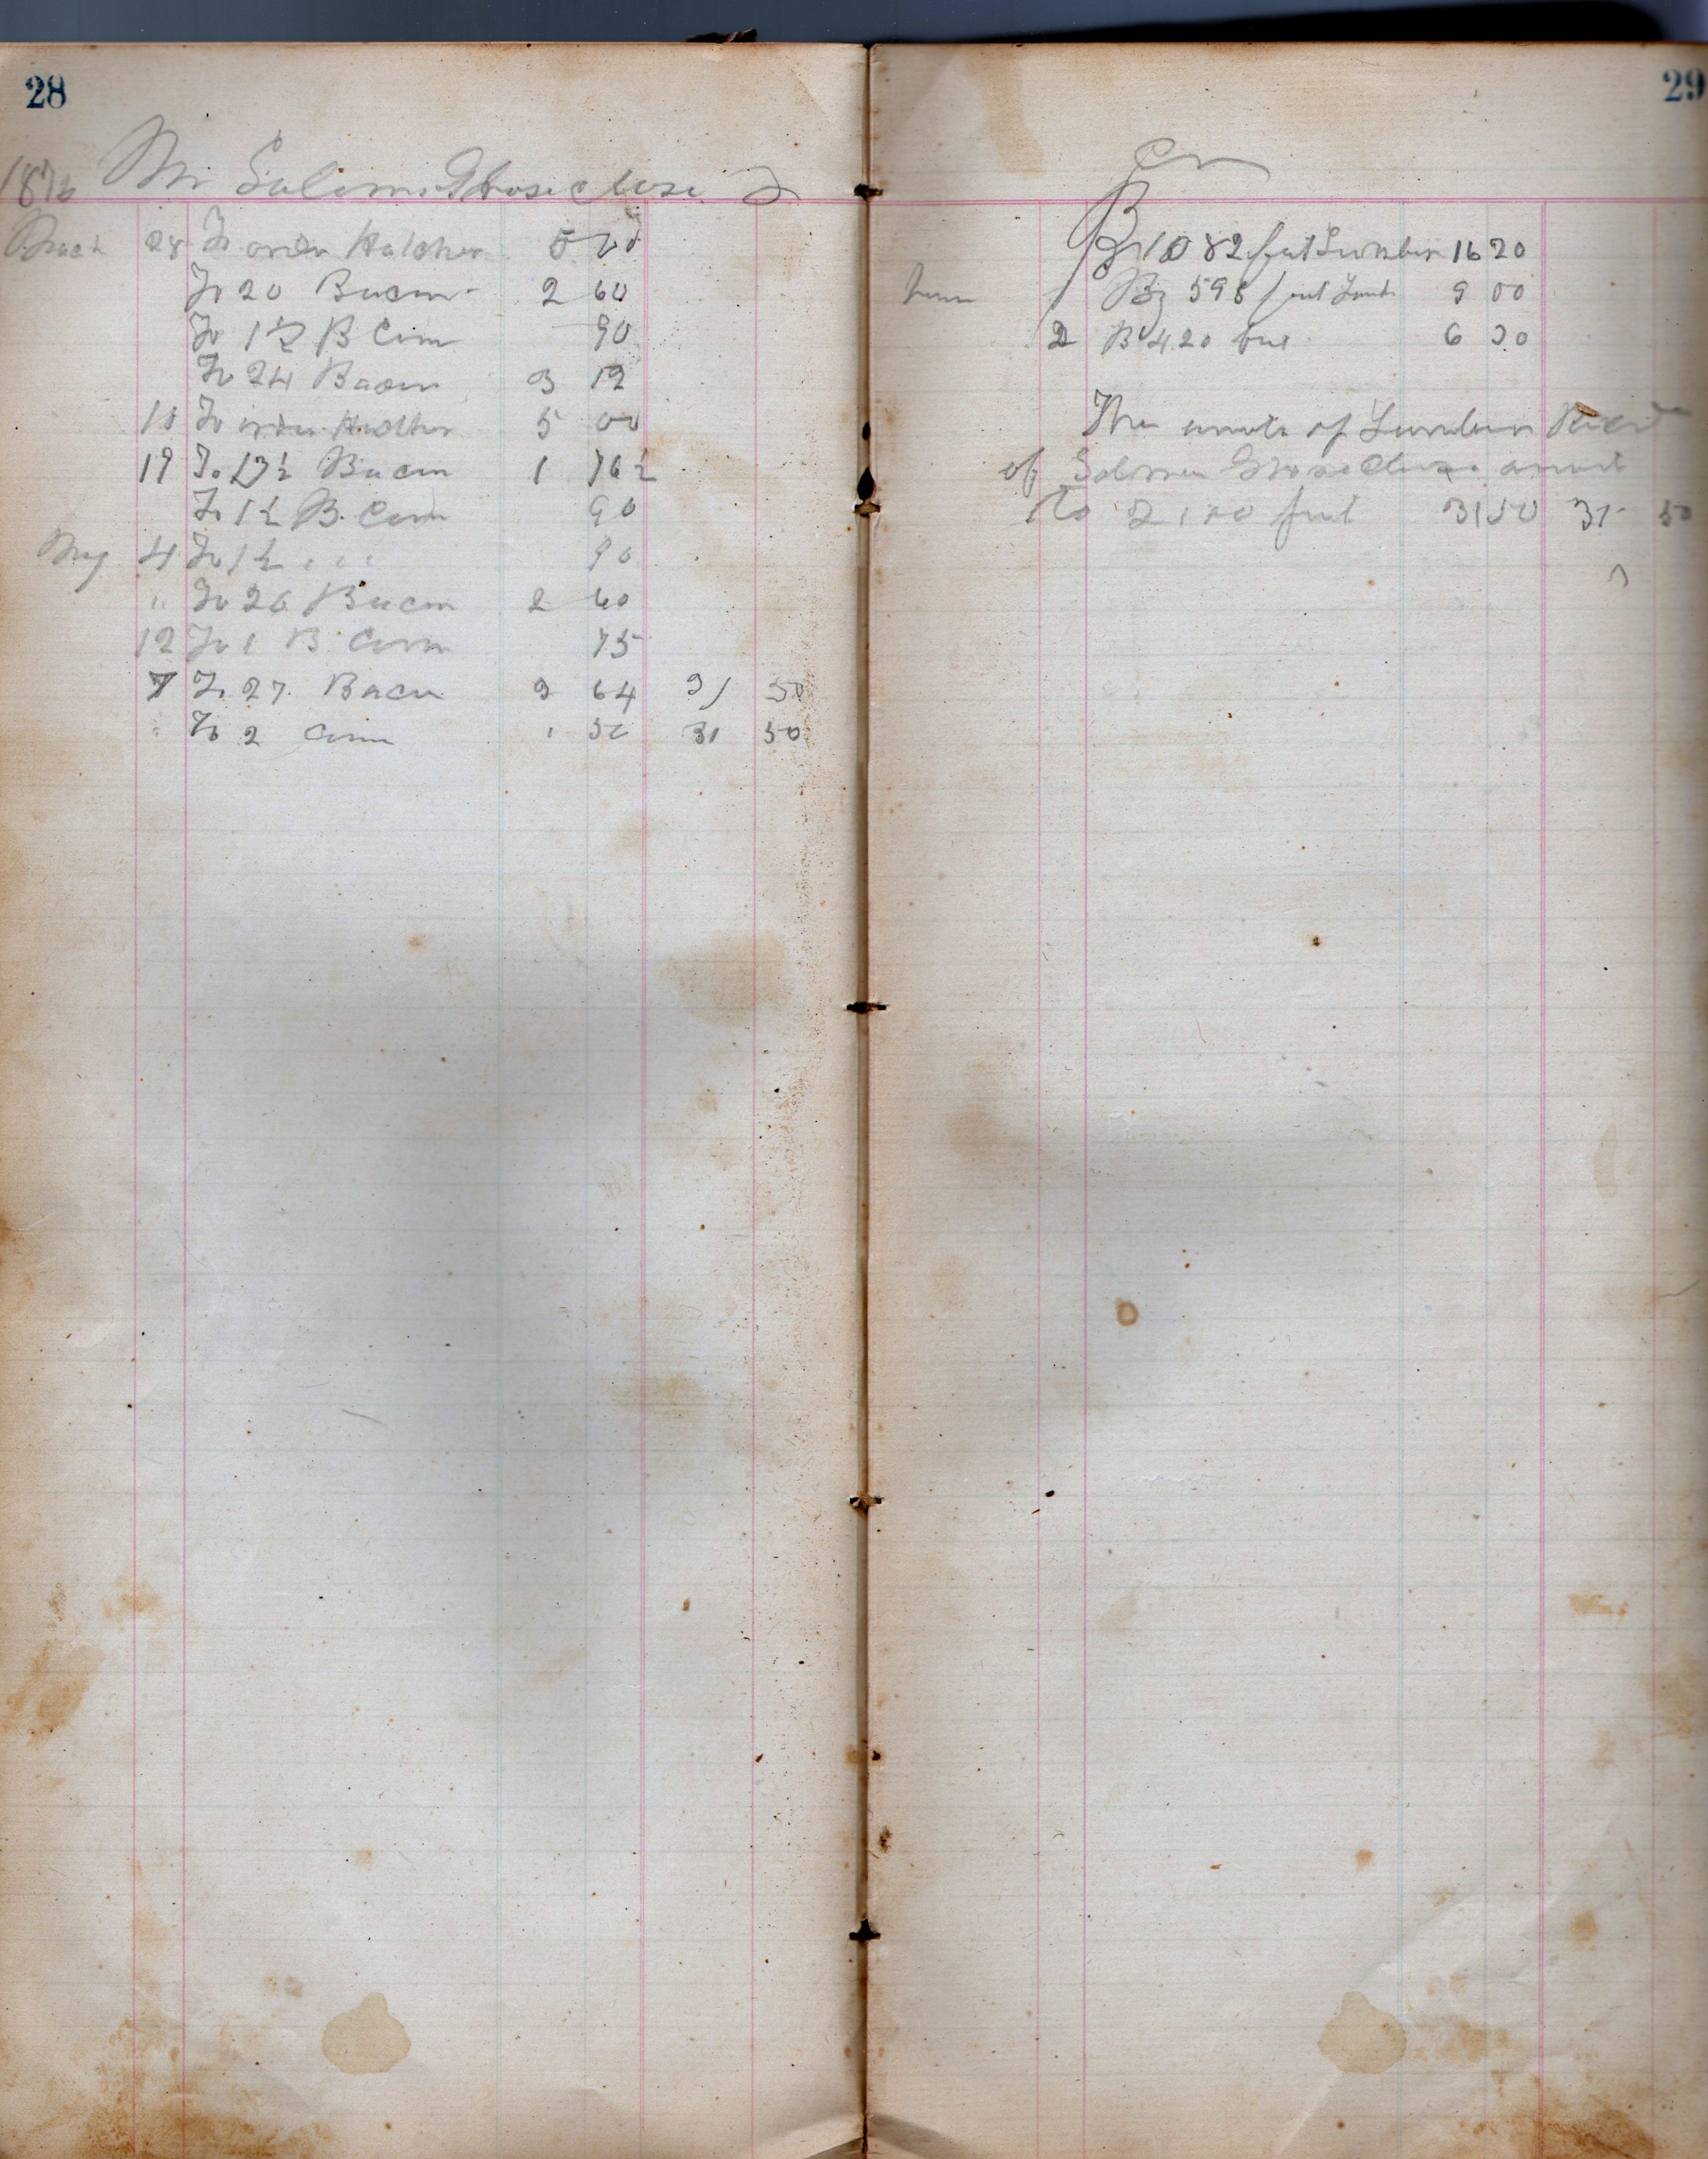 28
1876 Mr Solomon
28 To order Hatcher 5 00
To 20 Bacon 2 60
To 1½ B Corn 90
To 24 Bacon 3 12
18 To order Hatcher 5 00
19 To 13½ Bacon 1 76½
To 1½ B. Corn 90
May 4 To 1½ " " " 90
" To 20 Bacon 2 60
12 To 1 B Corn 75
7 To 27 Bacon 3 64 31 50
" To 2 Corn 1 50 31 50
29
Cr
By 1082 feet Lumber 16 20
1 By 598 feet Lumb 9 00
2 B 420 feet 6 30
The amount of Lumber Recd
of Solomon
to 2100 feet 31 50 31 50